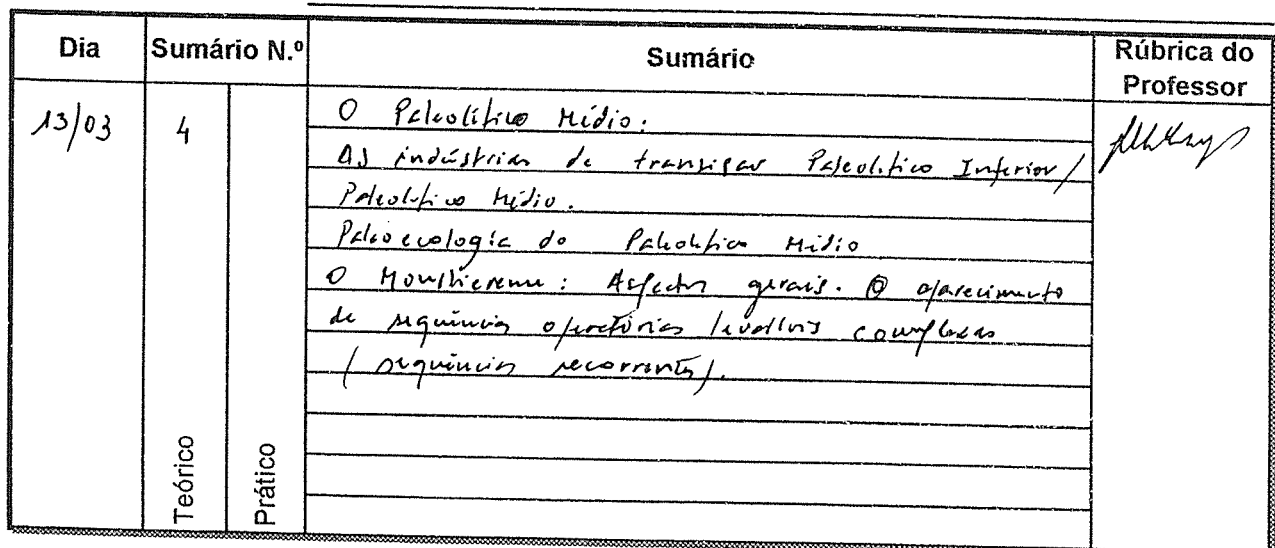 Dia Sumário N.º Sumário Rúbrica do Professor
13/03 4
O Paleolítico Médio.
As indústrias de transição Paleolítico Inferior/
Paleolítico Médio.
Paleoecologia do Paleolítico Médio
O Moustierense: Aspectos gerais. O aparecimento
de sequências operatórias levallois complexas
(sequências recorrentes).
Teórico
Prático